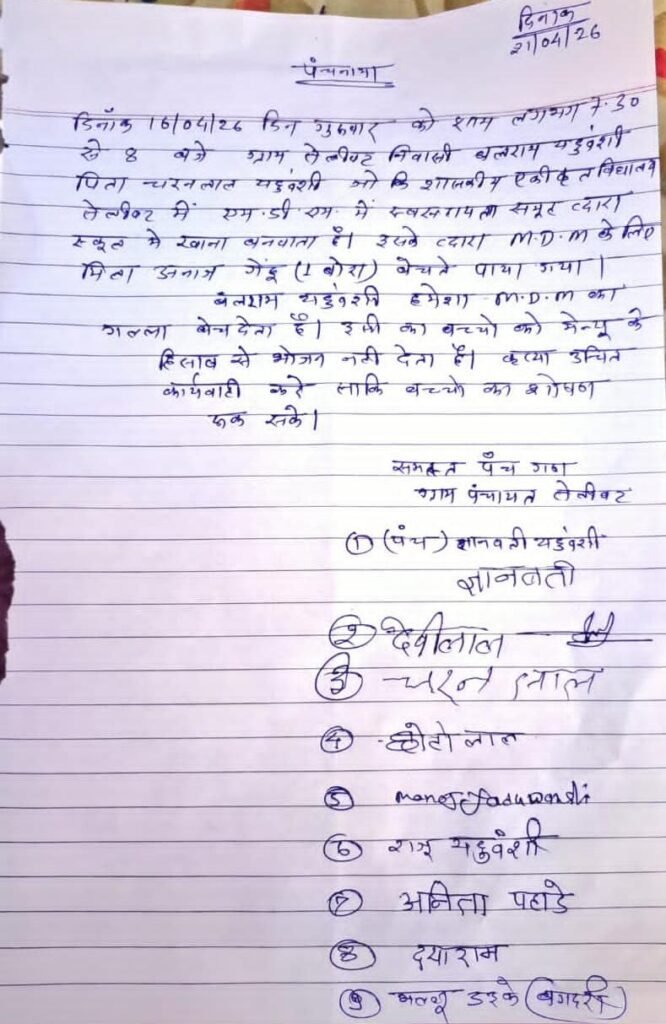 दिनांक
21/04/26
पंचनामा
दिनाँक 16/04/26 दिन गुरुवार को शाम लगभग 7.30
से 8 बजे ग्राम तेलीवट निवासी बलराम यदुवंशी
पिता चरनलाल यदुवंशी जो कि शासकीय एकीकृत विद्यालय
तेलीवट में एम.डी.एम. में स्वसहायता समूह व्दारा
स्कूल मे खाना बनवाता है। इसके व्दारा M.D.M के लिए
मिला अनाज गेंहू (1 बोरा) बेचते पाया गया।
बलराम यदुवंशी हमेशा M.D.M का
गल्ला बेच देता है। इसी का बच्चो को मेन्यू के
हिसाब से भोजन नही देता है। कृप्या उचित
कार्यवाही करे ताकि बच्चो का शोषण
रूक सके।
समस्त पँच गण
ग्राम पंचायत तेलीवट
① (पंच) ज्ञानवती यदुवंशी
ज्ञानवती
② देवीलाल
③ चरन लाल
④ छोटे लाल
⑤ manoj yaduwanshi
⑥ राजू यदुवंशी
⑦ अनिता पहाडे
⑧ दयाराम
⑨ उइके